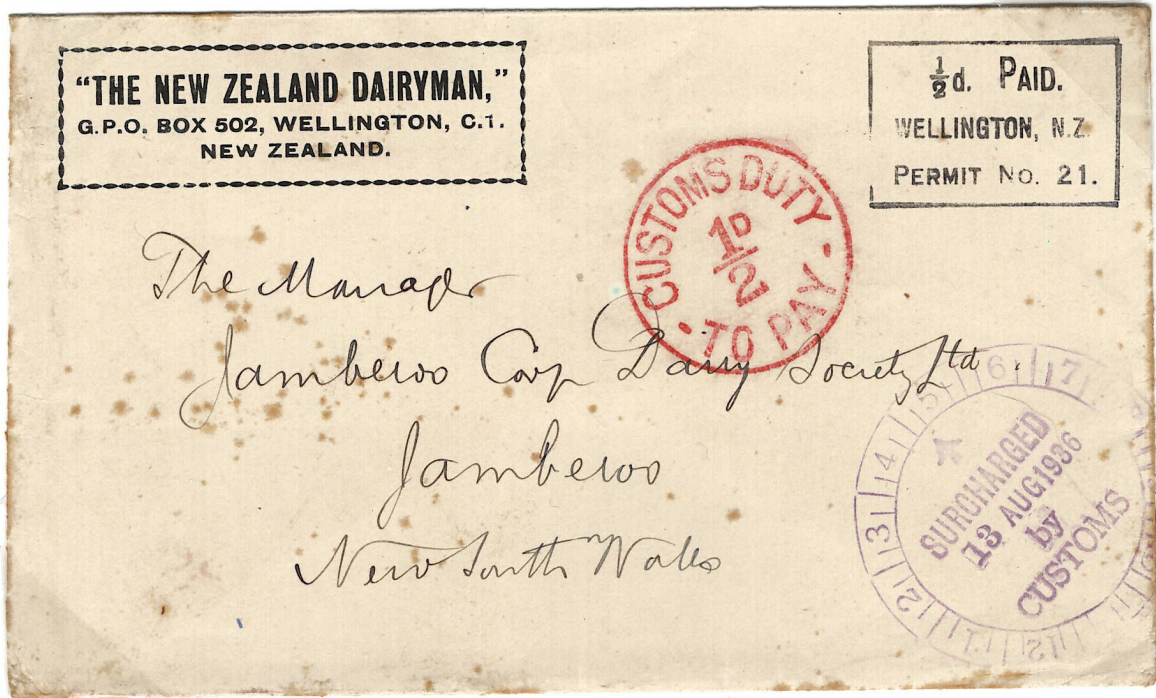 "THE NEW ZEALAND DAIRYMAN,"
G.P.O. BOX 502, WELLINGTON, C.1.
NEW ZEALAND.
½d. PAID.
WELLINGTON, N.Z.
PERMIT No. 21.
CUSTOMS DUTY
1D/2
- TO PAY -
The Manager
Jamberoo Coop Dairy Society Ltd.
Jamberoo
New South Wales
SURCHARGED
13 AUG 1936
by
CUSTOMS
11 12 1 2 3 4 5 6 7